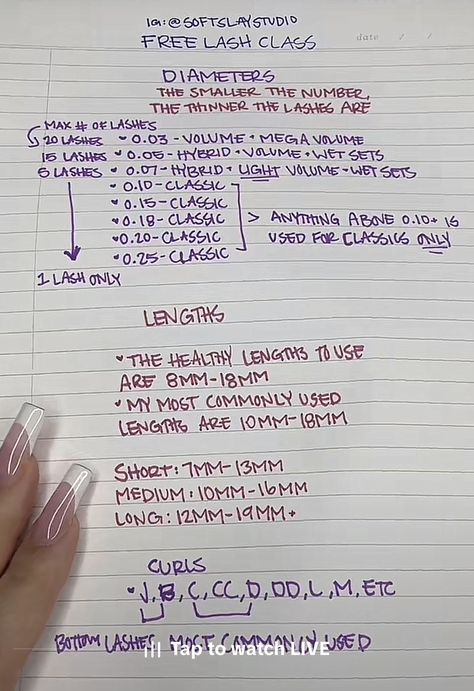 IG:@SOFTSLAYSTUDIO
FREE LASH CLASS
date / /
DIAMETERS
THE SMALLER THE NUMBER,
THE THINNER THE LASHES ARE
MAX # OF LASHES
20 LASHES • 0.03 - VOLUME + MEGA VOLUME
15 LASHES • 0.05 - HYBRID + VOLUME + WET SETS
5 LASHES • 0.07 - HYBRID + LIGHT VOLUME + WET SETS
• 0.10 - CLASSIC
• 0.15 - CLASSIC
• 0.18 - CLASSIC
• 0.20 - CLASSIC
• 0.25 - CLASSIC
> ANYTHING ABOVE 0.10+ IS
USED FOR CLASSICS ONLY
1 LASH ONLY
LENGTHS
• THE HEALTHY LENGTHS TO USE
ARE 8MM-18MM
• MY MOST COMMONLY USED
LENGTHS ARE 10MM-18MM
SHORT: 7MM-13MM
MEDIUM: 10MM-16MM
LONG: 12MM-19MM+
CURLS
• J, B, C, CC, D, DD, L, M, ETC
BOTTOM LASHES MOST COMMONLY USED
Tap to watch LIVE